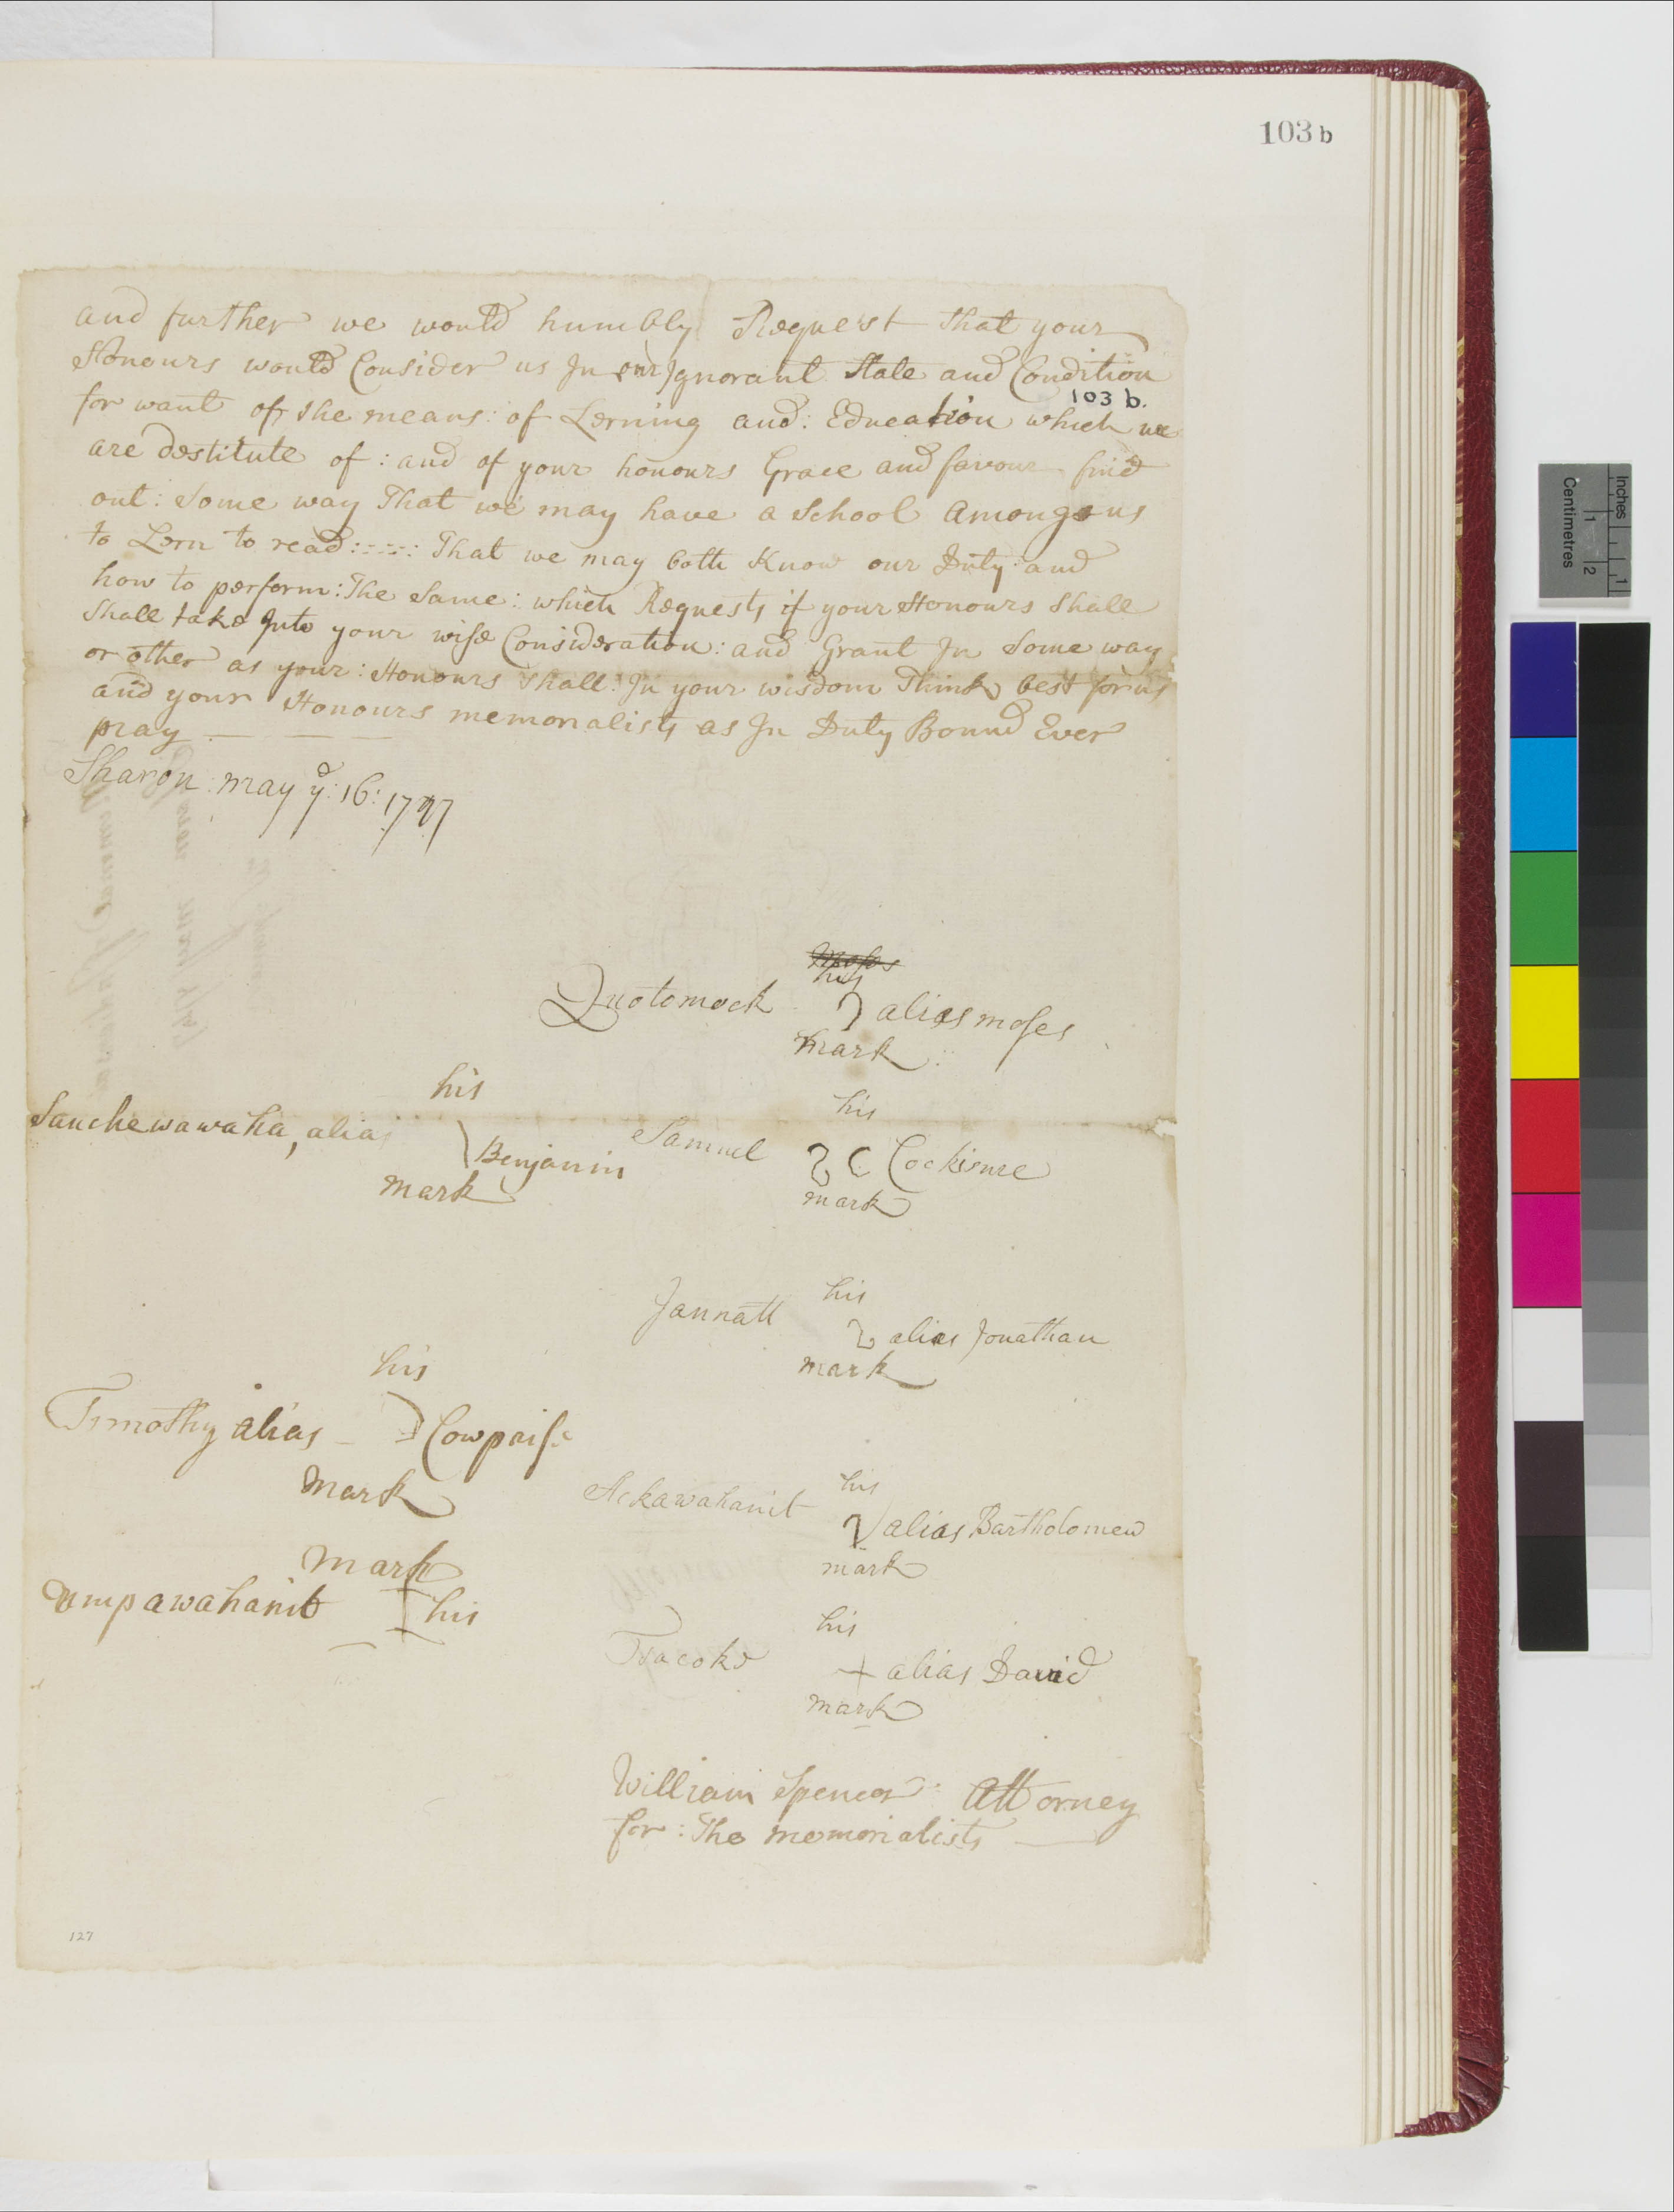 103 b
and further we would humbly Request That your
Honours would Consider us In our Ignorant State and Condition
103 b.
for want of the means: of Lerning and: Education which we
are destitute of: and of your honours Grace and favour find
out: Some way That we may have a School Amongs us
to Lern to read:---: That we may both Know our Duty: and
how to perform: The Same: which Requests if your Honours Shall
Shall take Into your wise Consideration: and Grant In Some way
or other as your: Honours Shall: In your wisdom Think best for us
and your Honours memorialists as In Duty Bound Ever
pray
Sharon: may ye: 16: 17
Moses
his
Quotomock alias moses
mark
his
Sauchewawaha, alias Benjamin
mark
his
Samuel Cockisure
mark
his
Jannatt alias Jonathan
mark
his
Timothy alias Cowpaise
mark
his
Ackawahanit alias Bartholomew
mark
mark
umpawahanit his
his
Tsacoke alias David
mark
William Spencer: Attorney
for: The memorialists
127
Inches
1
1
2
Centimetres